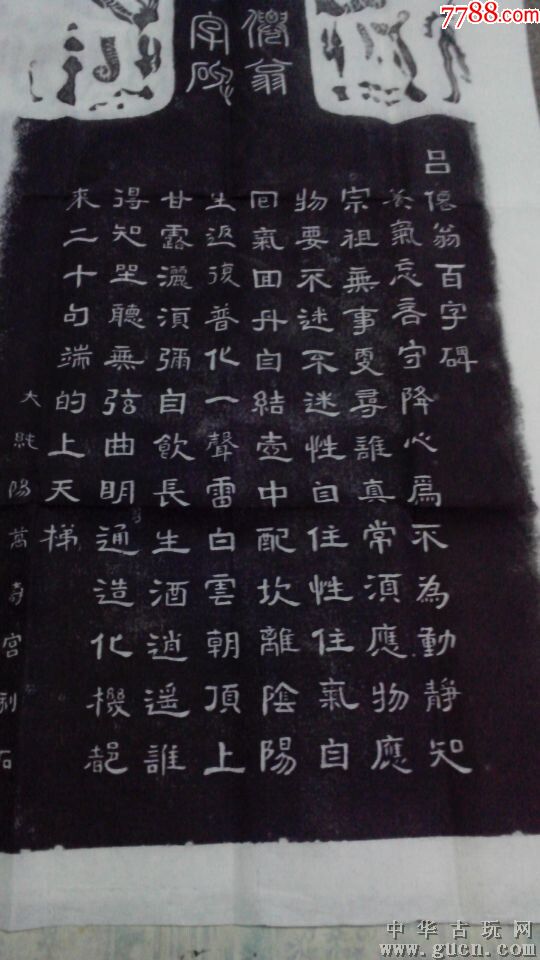 7788.com
僊翁
字碑
呂僊翁百字碑
養氣忘言守降心爲不為動靜知
宗祖無事更尋誰真常須應物應
物要不迷不迷性自住性住氣自
回氣回丹自結壺中配坎離陰陽
生返復普化一聲雷白雲朝頂上
甘露灑須彌自飲長生酒逍遥誰
得知坐聽無弦曲明通造化機都
來二十句端的上天梯
大純陽萬壽宮刻石
中华古玩网
www.gucn.com